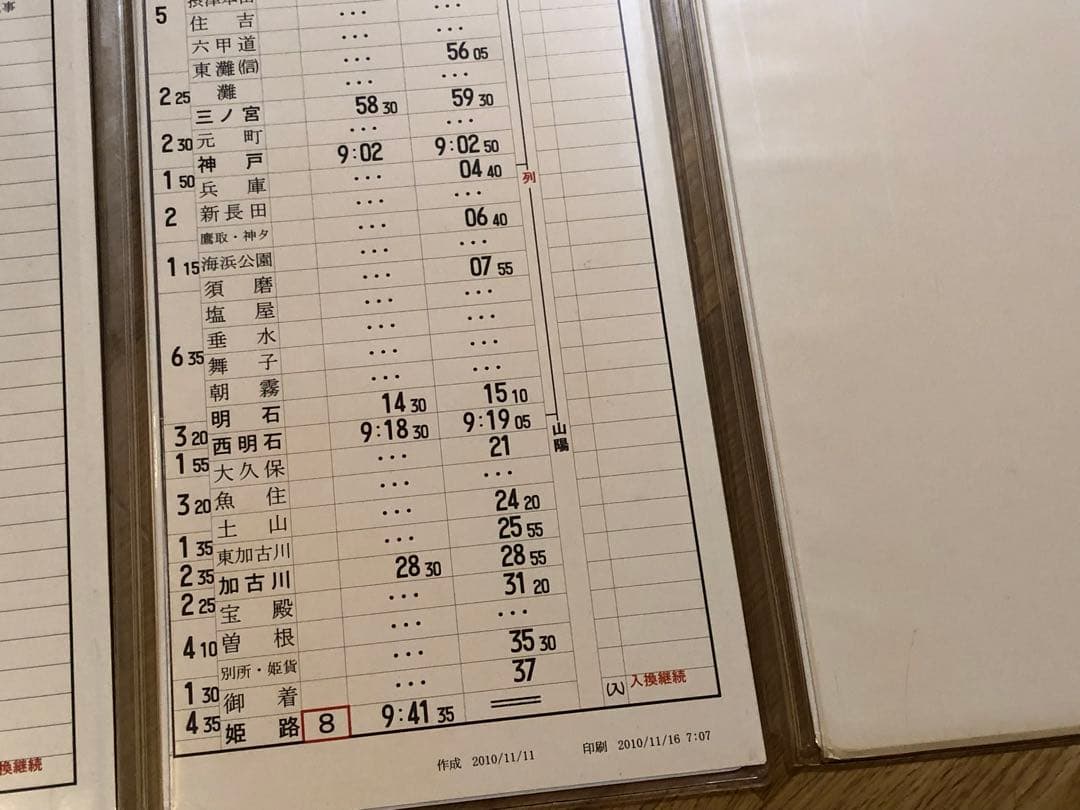 5
住吉 ... ...
六甲道 ... ...
東灘(信) ... 56 05
2 25 灘 ... ...
三ノ宮 58 30 59 30
2 30 元町 ... ...
神戸 9:02 9:02 50
1 50 兵庫 ... 04 40
列
2 新長田 ... ...
鷹取・神タ ... 06 40
1 15 海浜公園 ... ...
須磨 ... 07 55
塩屋 ... ...
垂水 ... ...
6 35 舞子 ... ...
朝霧 ... ...
明石 14 30 15 10
3 20 西明石 9:18 30 9:19 05
山陽
1 55 大久保 ... 21
3 20 魚住 ... ...
土山 ... 24 20
1 35 東加古川 ... 25 55
2 35 加古川 28 30 28 55
2 25 宝殿 ... 31 20
4 10 曽根 ... ...
別所・姫貨 ... 35 30
1 30 御着 ... 37
4 35 姫路 8 9:41 35
(入) 入換継続
作成 2010/11/11 印刷 2010/11/16 7:07
換継続